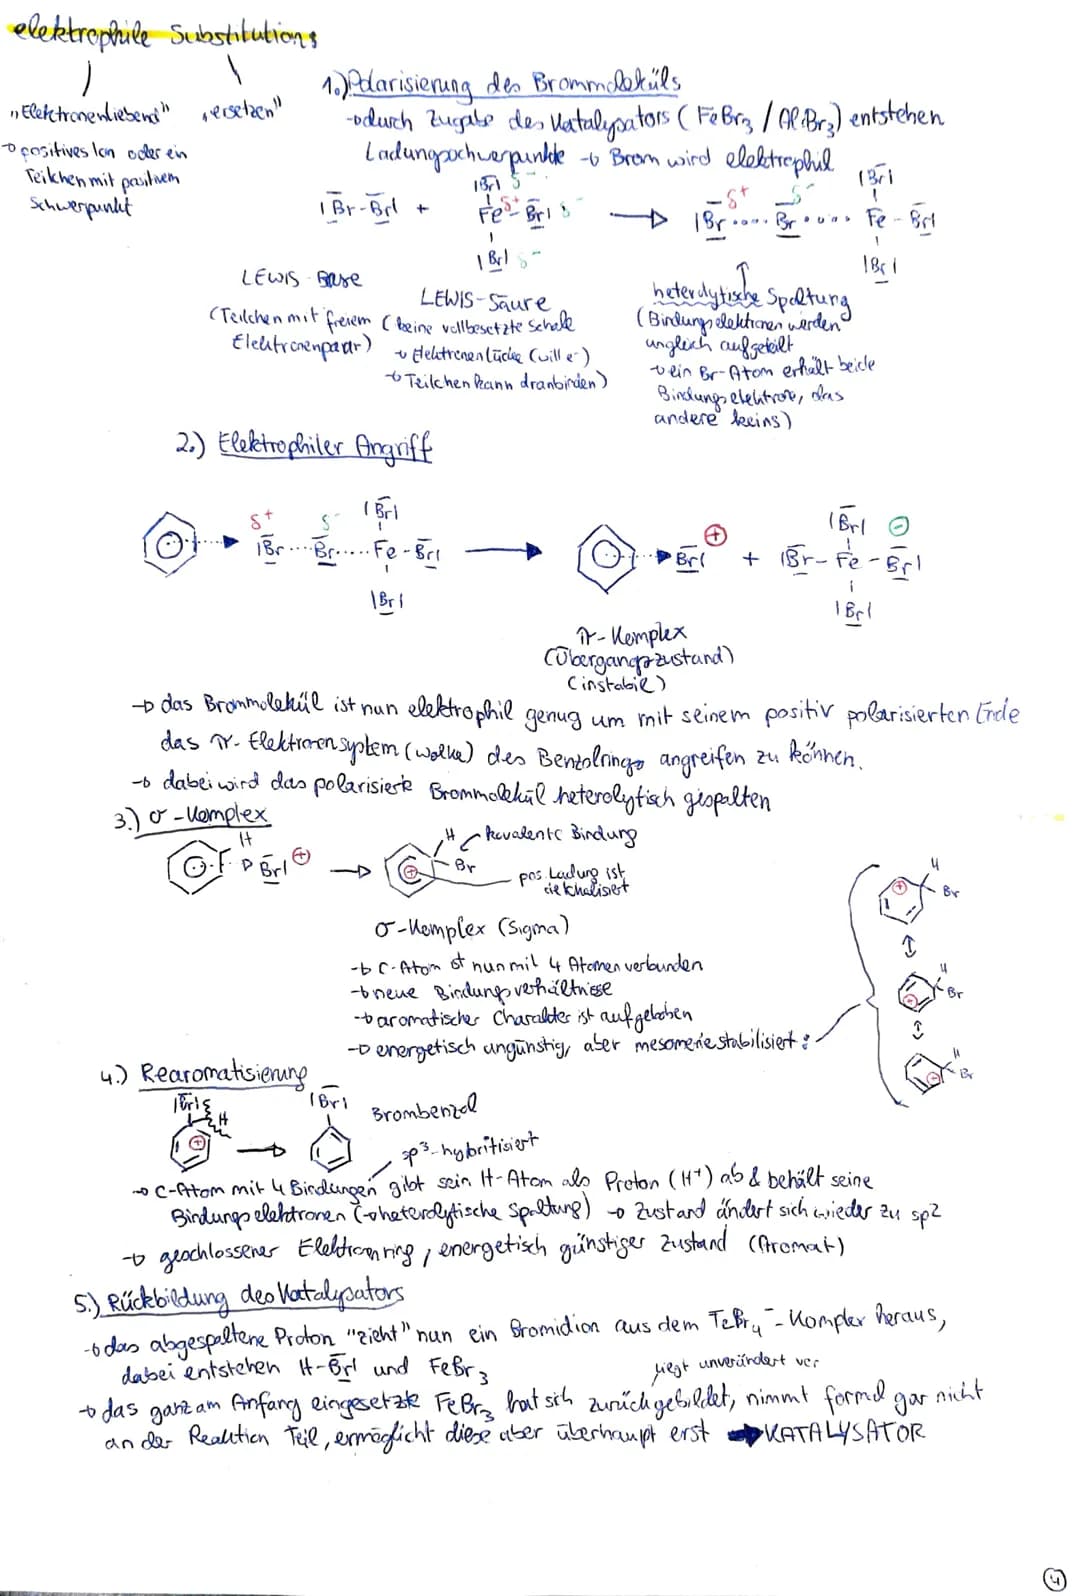 elektrophile Substitutions
"Elektronenliebend"
"ersetzen"
→ positives Ion oder ein
Teilchen mit positivem
Schwerpunkt
1.) Polarisierung des Brommoleküls
→ durch Zugabe des Katalysators (FeBr3 / AlBr3) entstehen
Ladungsschwerpunkte → Brom wird elektrophil
|Br-Br| + Fe-Br| → |Br .... Br .... Fe - Br|
LEWIS-Base
(Teilchen mit freiem
Elektronenpaar)
LEWIS-Säure
(keine vollbesetzte Schale
→ Elektronenlücke (will e-)
→ Teilchen kann dranbinden)
heterolytische Spaltung
(Bindungselektronen werden
ungleich aufgeteilt
→ ein Br-Atom erhält beide
Bindungselektrone, das
andere keins)
2.) Elektrophiler Angriff
δ+ δ- |Br|
|Br ... Br .... Fe - Br| → Br| ⊕ + |Br - Fe - Br| ⊖
|Br|
π-Komplex
(Übergangszustand)
(instabil)
→ das Brommolekül ist nun elektrophil genug um mit seinem positiv polarisierten Ende
das π-Elektronensystem (wolke) des Benzolrings angreifen zu können.
→ dabei wird das polarisierte Brommolekül heterolytisch gespalten
3.) σ-Komplex
H
Br| ⊕ → H Br
kovalente Bindung
pos. Ladung ist
delokalisiert
σ-Komplex (Sigma)
→ C-Atom ist nun mit 4 Atomen verbunden
→ neue Bindungsverhältnisse
→ aromatischer Charakter ist aufgehoben
→ energetisch ungünstig, aber mesomeriestabilisiert:
H
Br
H
Br
H
Br
4.) Rearomatisierung
|Br| H → |Br|
Brombenzol
sp3-hybritisiert
→ C-Atom mit 4 Bindungen gibt sein H-Atom als Proton (H+) ab & behält seine
Bindungselektronen (→ heterolytische Spaltung) → Zustand ändert sich wieder zu sp2
→ geschlossener Elektronring, energetisch günstiger Zustand (Aromat)
5.) Rückbildung des Katalysators
→ das abgespaltene Proton "zieht" nun ein Bromidion aus dem FeBr4- -Komplex heraus,
dabei entstehen H-Br| und FeBr3
liegt unverändert vor
→ das ganz am Anfang eingesetzte FeBr3 hat sich zurückgebildet, nimmt formal gar nicht
an der Reaktion Teil, ermöglicht diese aber überhaupt erst → KATALYSATOR
4